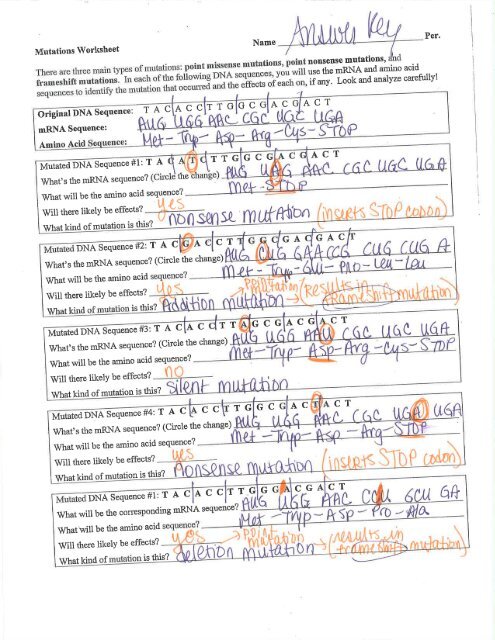 Name Answer Key Per.
Mutations Worksheet
There are three main types of mutations: point missense mutations, point nonsense mutations, and
frameshift mutations. In each of the following DNA sequences, you will use the mRNA and amino acid
sequences to identify the mutation that occurred and the effects of each on, if any. Look and analyze carefully!
Original DNA Sequence: T A C A C C T T G G C G A C G A C T
mRNA Sequence: AUG UGG AAC CGC UGC UGA
Amino Acid Sequence: Met - Trp - Asp - Arg - Cys - STOP
Mutated DNA Sequence #1: T A C A T C T T G G C G A C G A C T
What's the mRNA sequence? (Circle the change) AUG UAG AAC CGC UGC UGA
What will be the amino acid sequence? Met - STOP
Will there likely be effects? yes
What kind of mutation is this? nonsense mutation (inserts STOP codon)
Mutated DNA Sequence #2: T A C G A C C T T G G C G A C G A C T
What's the mRNA sequence? (Circle the change) AUG CUG GAA CCG CUG CUG A
What will be the amino acid sequence? Met - Tryp - Glu - Pro - Leu - Leu
Will there likely be effects? Yes
What kind of mutation is this? Addition mutation → (results in frameshift mutation)
Mutated DNA Sequence #3: T A C A C C T T A G C G A C G A C T
What's the mRNA sequence? (Circle the change) AUG UGG AAU CGC UGC UGA
What will be the amino acid sequence? Met - Tryp - Asp - Arg - Cys - STOP
Will there likely be effects? no
What kind of mutation is this? Silent mutation
Mutated DNA Sequence #4: T A C A C C T T G G C G A C T A C T
What's the mRNA sequence? (Circle the change) AUG UGG AAC CGC UGA UGA
What will be the amino acid sequence? Met - Tryp - Asp - Arg - STOP
Will there likely be effects? yes
What kind of mutation is this? Nonsense mutation (inserts STOP codon)
Mutated DNA Sequence #1: T A C A C C T T G G G A C G A C T
What will be the corresponding mRNA sequence? AUG UGG AAC CCU GCU GA
What will be the amino acid sequence? Met - Tryp - Asp - Pro - Ala
Will there likely be effects? yes
What kind of mutation is this? deletion mutation → (results in frameshift mutation)